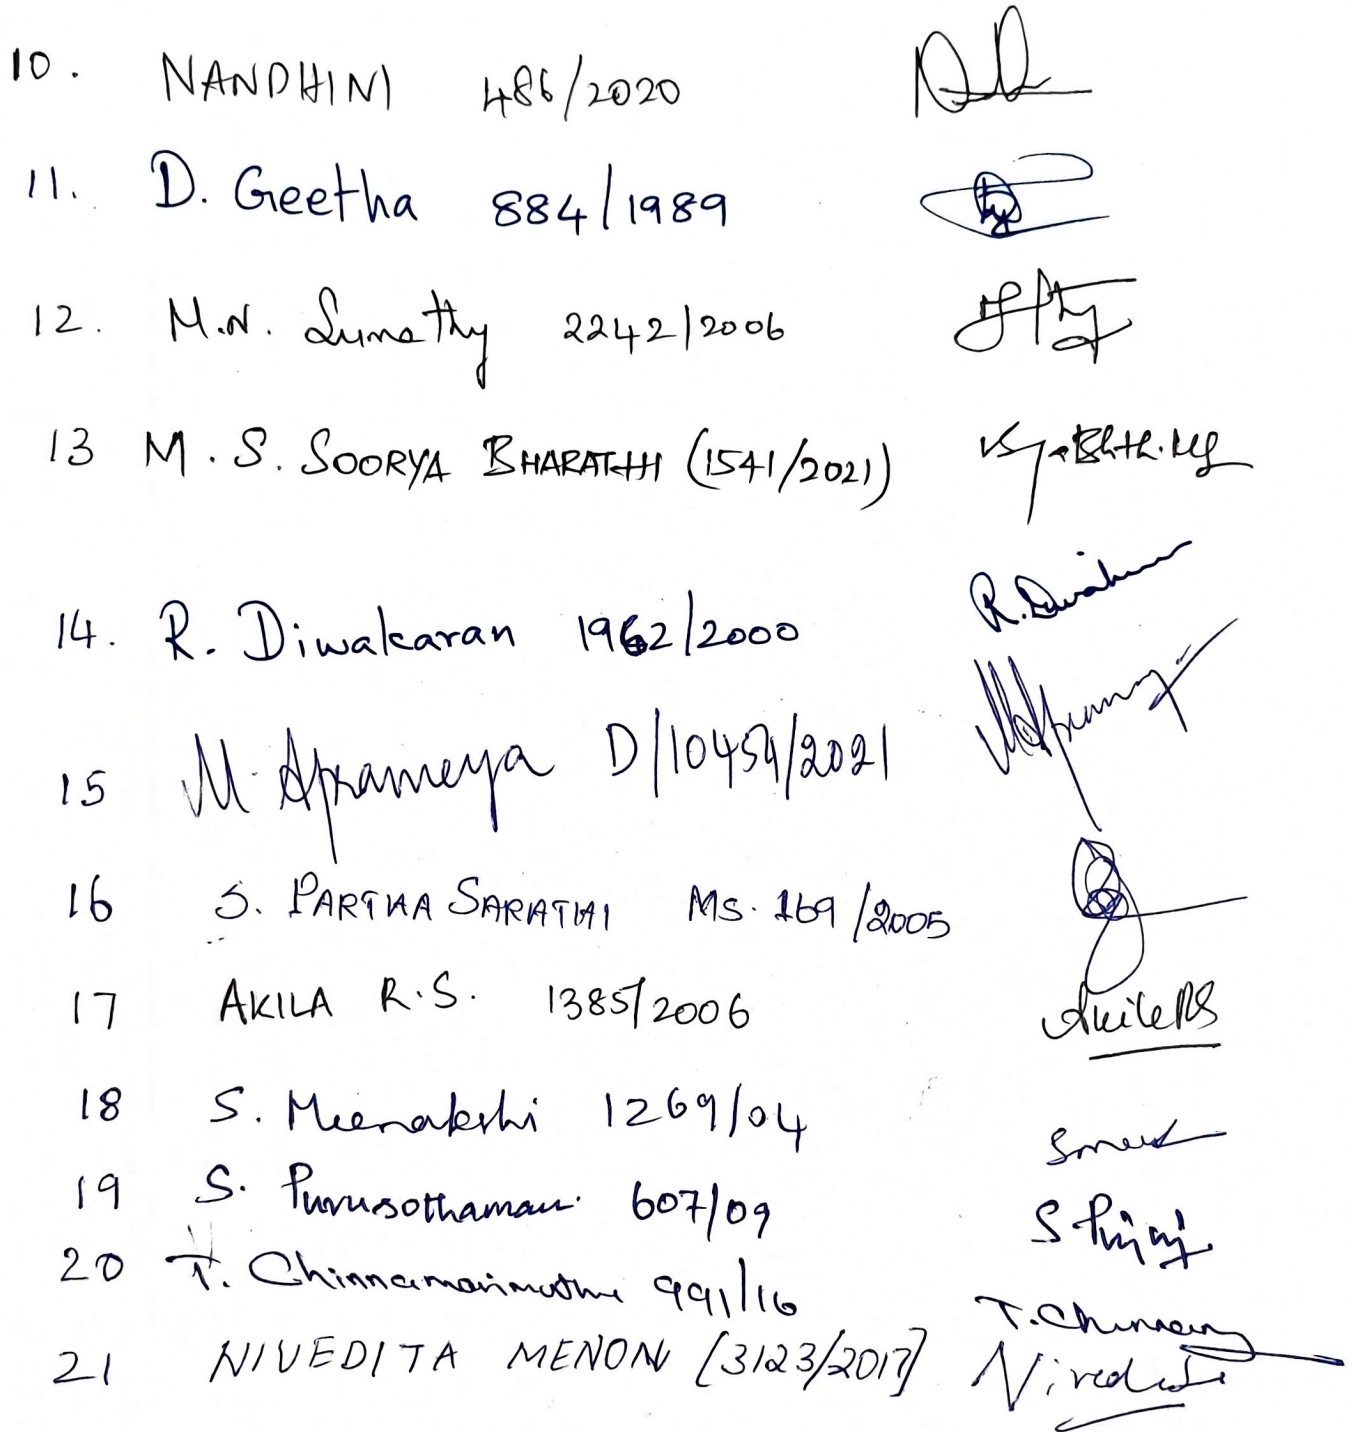 10. NANDHINI 486/2020
11. D. Geetha 884/1989
12. M.N. Sumathy 2242/2006
13 M. S. SOORYA BHARATHI (1541/2021)
R. Diwakaran
14. R. Diwakaran 1962/2000
15 M. Aprameya D/10454/2021
16 S. PARTHA SARATHI MS. 169/2005
17 AKILA R.S. 1385/2006 Akila RS
18 S. Meenakshi 1269/04
19 S. Purusothaman 607/09
20 T. Chinnamarimuthu 991/16
21 NIVEDITA MENON [3123/2017] Nivedita